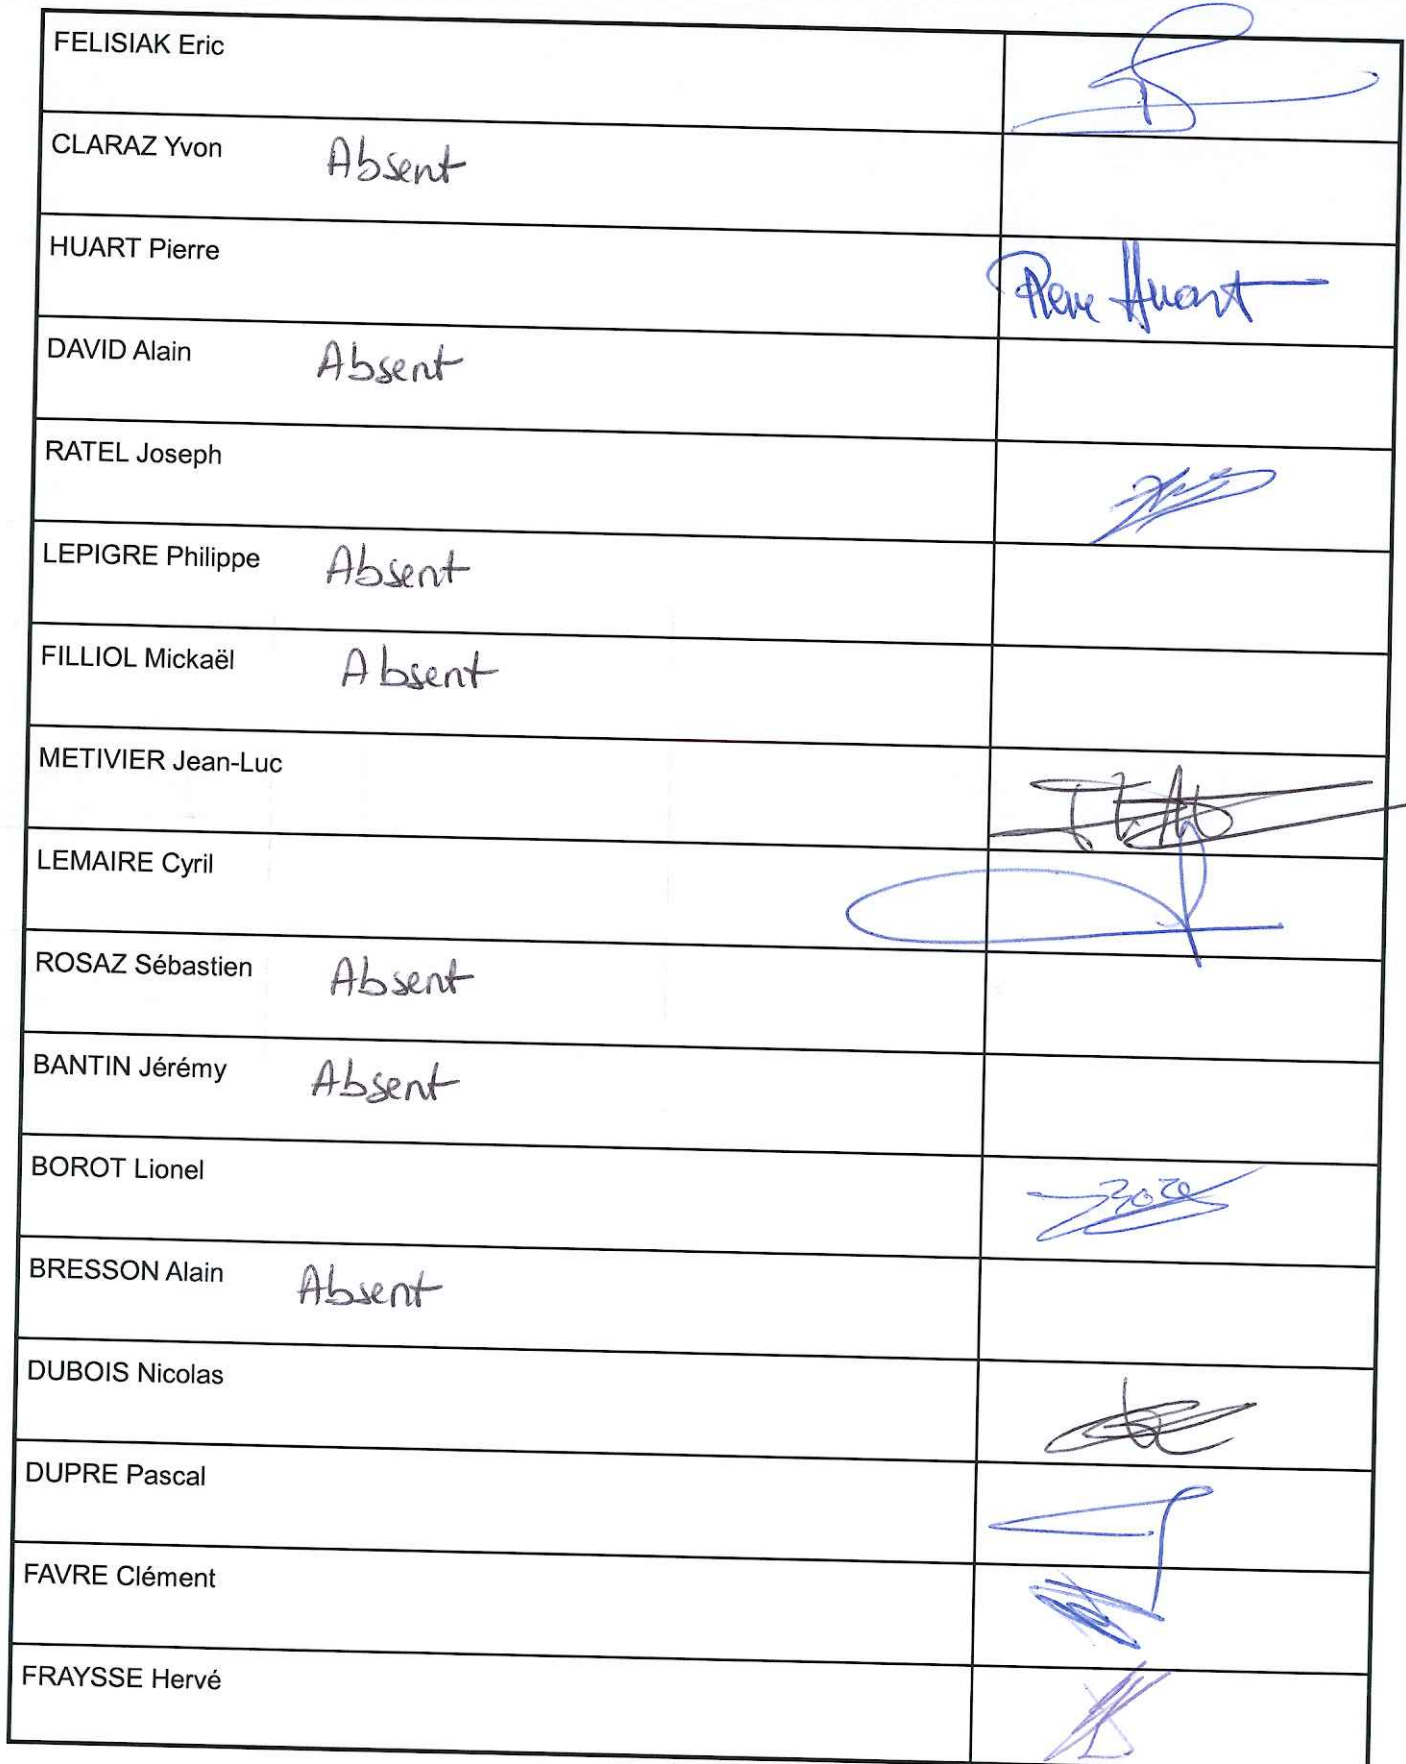 FELISIAK Eric
CLARAZ Yvon Absent
HUART Pierre Pierre Huart
DAVID Alain Absent
RATEL Joseph
LEPIGRE Philippe Absent
FILLIOL Mickaël Absent
METIVIER Jean-Luc
LEMAIRE Cyril
ROSAZ Sébastien Absent
BANTIN Jérémy Absent
BOROT Lionel
BRESSON Alain Absent
DUBOIS Nicolas
DUPRE Pascal
FAVRE Clément
FRAYSSE Hervé